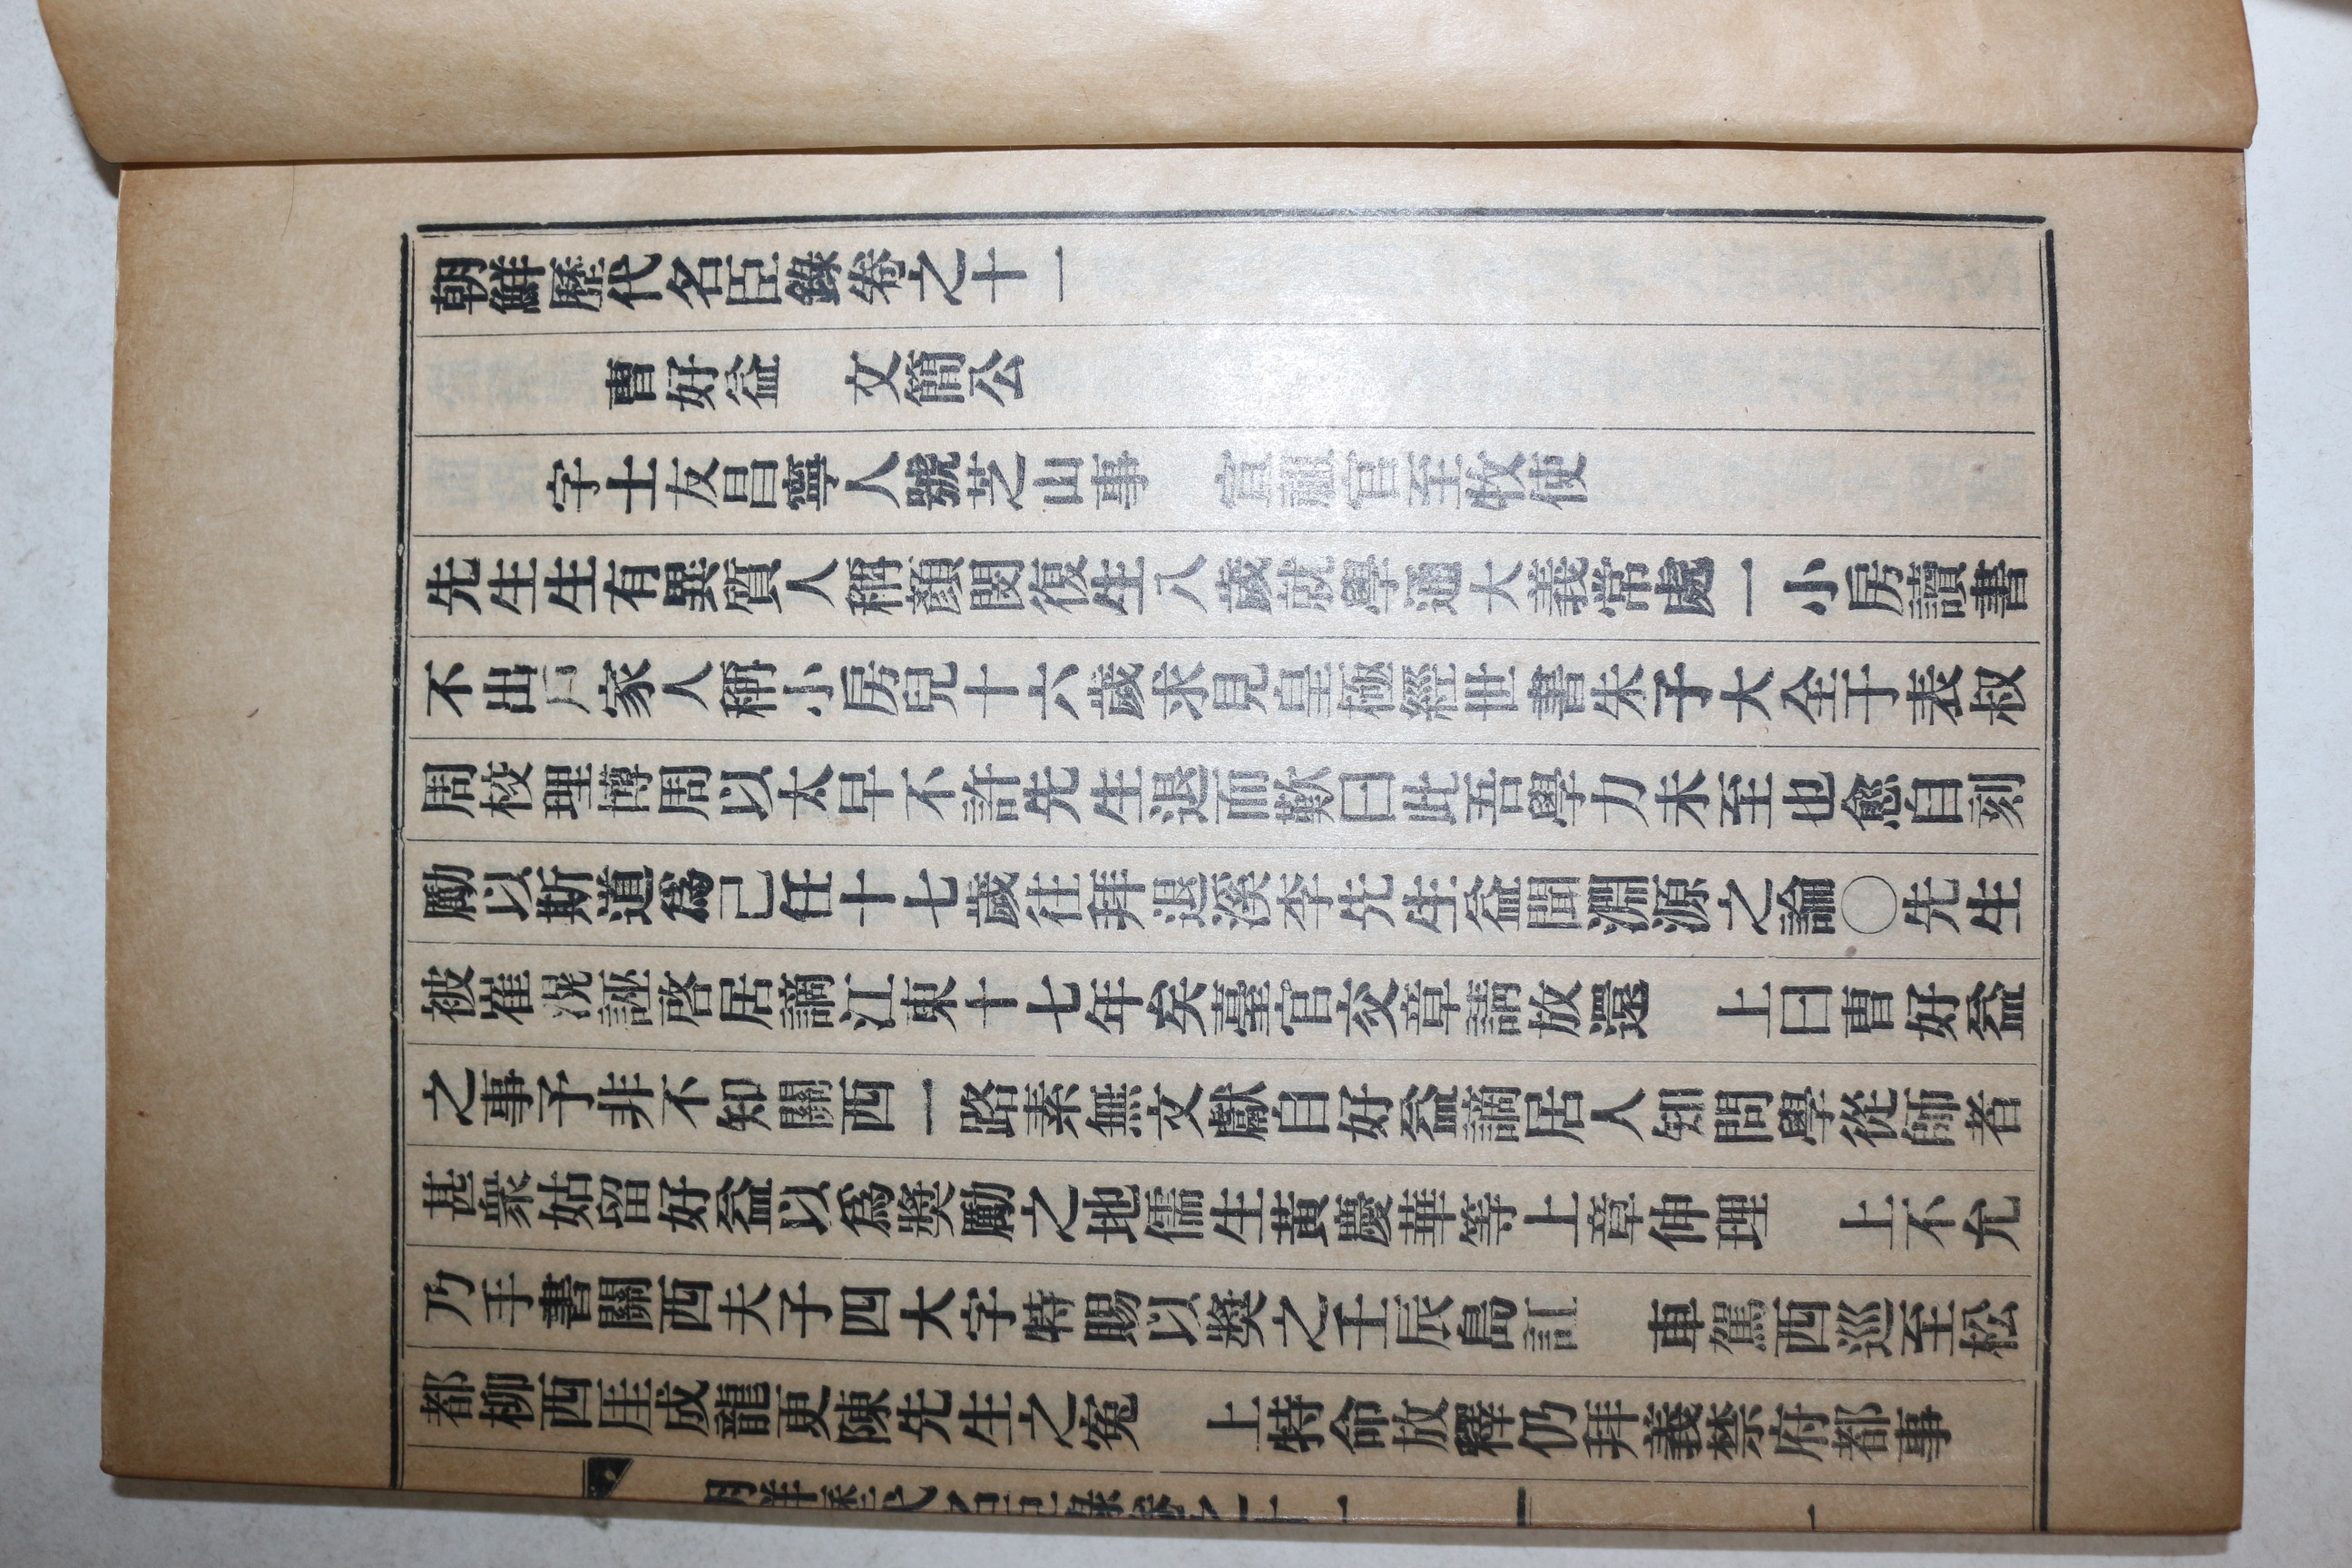 朝鮮歷代名臣錄卷之十一
曺好益 文簡公
字士友昌寧人號芝山事 宣祖官至牧使
先生生有異質人稱顏閔復生八歲就學通大義常處一小房讀書
不出戶家人稱小房兒十六歲求見皇極經世書朱子大全于表叔
周校理博周以太早不許先生退而歎曰此吾學力未至也愈自刻
勵以斯道爲己任十七歲往拜退溪李先生益聞淵源之論○先生
被崔滉誣啓居謫江東十七年矣臺官交章請放還 上曰曺好益
之事予非不知關西一路素無文獻自好益謫居人知問學從師者
甚衆姑留好益以爲獎勵之地儒生黃慶華等上章伸理 上不允
乃手書關西夫子四大字特賜以獎之壬辰島訌 車駕西巡至松
都柳西厓成龍更陳先生之寃 上特命放釋仍拜義禁府都事
朝鮮歷代名臣錄卷之十一 一